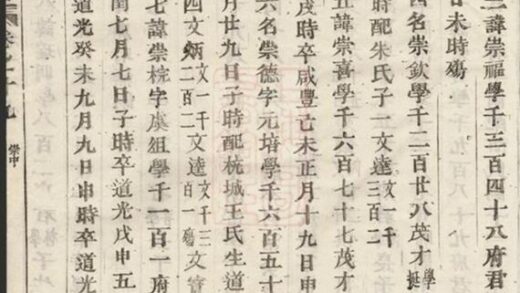 三諱崇福學千三百四十八府君
廿未時殤
四名崇欽學千二百廿八茂才學挺
時配朱氏子一文逵文一千三百二
五諱崇喜學千六百七十七茂才
戌時卒咸豐己未正月十九日申
六名崇德字元培學千六百五十
月廿九日子時配杭城王氏生道
四文炳文一千二百二文達文千三百一殤文
七諱崇梡字虞組學千一百一府
閏七月七日子時卒道光戊申五
道光癸未九月九日申時卒道光
崇中